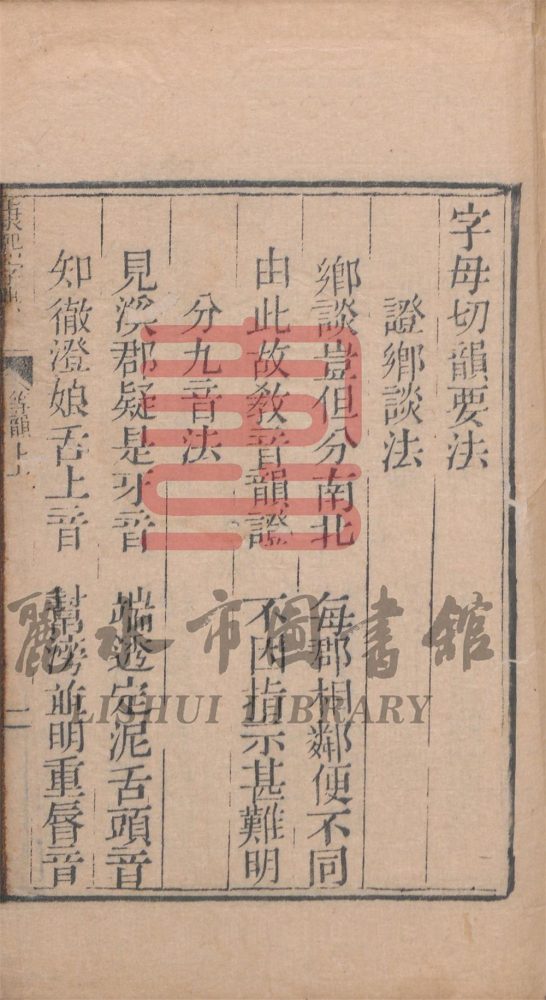 字母切韻要法
證鄉談法
鄉談豈但分南北 每郡相鄰便不同
由此故教音韻證 不因指示甚難明
分九音法
見溪郡疑是牙音 端透定泥舌頭音
知徹澄娘舌上音 幫滂並明重唇音
康熙字典
等韻 上
二
麗水市圖書館
LISHUI LIBRARY